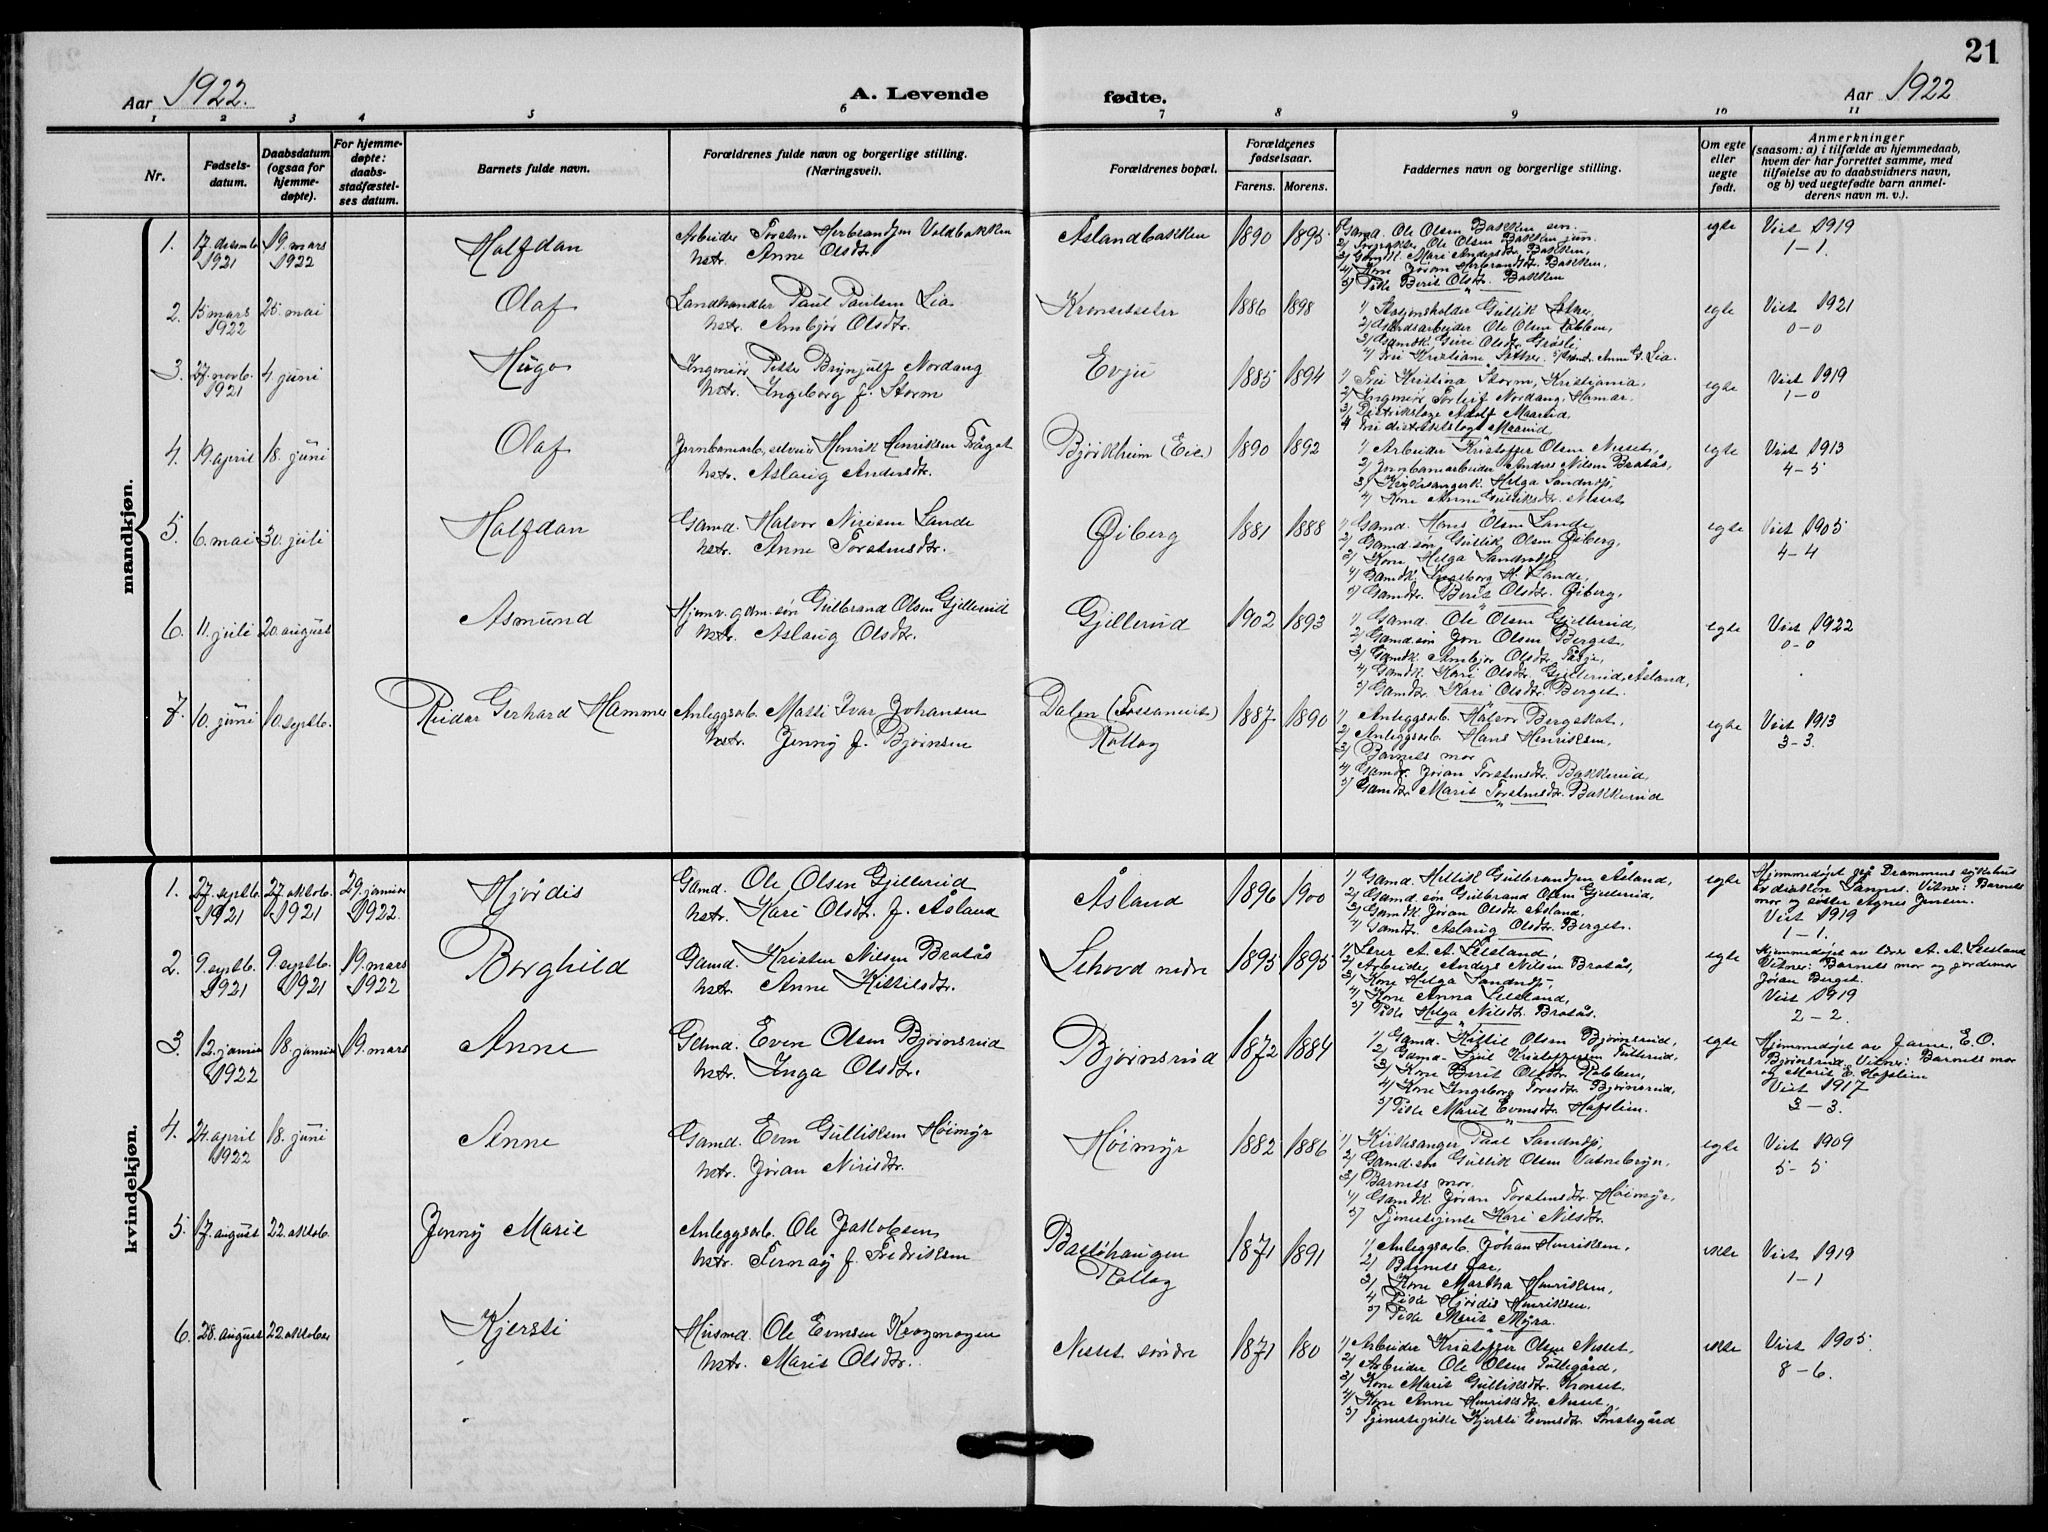 21
Aar 1922.
A. Levende fødte.
Aar 1922
1 2 3 4 5 6 7 8 9 10 11
Nr.
Fødsels-
datum.
Daabsdatum
(ogsaa for
hjemme-
døpte).
For hjemme-
døpte:
daabs-
stadfæstel-
ses datum.
Barnets fulde navn.
Forældrenes fulde navn og borgerlige stilling.
(Næringsvei).
Forældrenes bopæl.
Forældrenes
fødselsaar.
Farens. Morens.
Faddernes navn og borgerlige stilling.
Om egte
eller
uegte
født.
Anmerkninger
(saasom: a) i tilfælde av hjemmedaab,
hvem der har forrettet samme, med
tilføielse av to daabsvidners navn,
og b) ved uegtefødte barn anmel-
derens navn m. v.).
mandkjøn.
1.
17. desemb.
1921
19. mars
1922
Halfdan
Arbeider Torsten Herbrandsen Voldbakken
hstr. Anne Olsdtr.
Åslandbakken
1890
1895
1/ Gamd. Ole Olsen Bakken sen.
2/ Ole Olsen Bakken jun.
3/ Gamdk. Mari Andersdtr. Bakken,
4/ Kone Jøran Herbrandsdtr. Bakken,
5/ Pike Berit Olsdtr. Bakken
egte
Viet 1919
1-1.
2.
15 mars
1922
25. mai
Olaf
Landhandler Paul Paulsen Lia
hstr. Ambjør Olsdtr.
Kronsetseter
1886
1898
1/ Stasjonsholder Gullik Sether,
2/ Gårdsarbeider Ole Olsen Rabben,
3/ Gamdk. Guri Olsdtr. Grøsli,
4/ Fru Kristiane Sether. 5/ Gamdr. Anne G. Lia.
egte
Viet 1921
0-0
3.
27. novb.
1921
4. juni
Hugo
Ingeniør Petter Brynjulf Nordang
hstr. Ingeborg f. Storm
Evju
1885
1894
1/ Fru Kristina Storm, Kristiania,
2/ Ingeniør Torleif Nordang, Hamar.
3/ Distrikslæge Adolf Maarud,
4 Fru distriktslæge Maarud
egte
Viet 1919
1-0
4.
19. april
18. juni
Olaf
Jernbanearb, selveier Henrik Henriksen Trågat
hstr. Aslaug Andersdtr.
Bjørkheim (Eie)
1890
1892
1/ Arbeider Kristoffer Olsen Nesset,
2/ Jernbanearbeider Andres Nilsen Bratås,
3/ Kirkesangerk. Helga Sandnes,
4/ Kone Anne Gulliksdtr. Nesset
egte
Viet 1913
4-5
5.
6. mai
30. juli
Halfdan
Gamd. Halvor Nirisen Lande
hstr. Anne Torstensdtr.
Øiberg
1881
1888
1/ Gamd. Hans Olsen Lande,
2/ Gamd.søn Gullik Olsen Øiberg,
3/ Kone Helga Sandnes
4/ Gamdk. Ingeborg H. Lande,
5/ Gamdtr. Berit Olsdtr. Øiberg.
egte
Viet 1905
4-4
6.
11. juli
20. august
Asmund
Hjemv. gdm.søn Gulbrand Olsen Gjellerud
hstr. Aslaug Olsdtr.
Gjellerud
1902
1893
1/ Gamd. Ole Olsen Gjellerud,
2/ Gamd.søn Jon Olsen Berget,
3/ Gamdk. Ambjør Olsdtr.
4/ Gamdk Kari Olsdtr. Gjellerud, Åsland,
5/ Gamdtr. Kari Olsdtr. Berget.
egte
Viet 1922
0-0
7.
10. juni
10. septb.
Reidar Gerhard Hammer
Anleggsarb. Matti Ivar Johansen
hstr. Jenny f. Bjørnsen
Dalen (Fossanviet)
Rollag
1887
1890
1/ Anleggsarb. Halvor Bergskat,
2/ Anleggsarb. Hans Henriksen,
3/ Barnets mor
4/ Gamdr. Jøran Torstensdtr. Bakkerud
5/ Gamdtr. Marit Torstensdtr. Bakkerud
egte
Viet 1913
3-3.
kvindekjøn.
1.
27. septb.
1921
27. oktob.
1921
29. januar
1922.
Hjørdis
Gamd. Ole Olsen Gjellerud
hstr. Kari Olsdtr. f. Åsland
Åsland
1896
1900
1/ Gamd. Hellik Gulbrandsen Åsland,
2/ Gamd. søn Gulbrand Olsen Gjellerud,
3/ Gamdk Jøran Olsdtr. Åsland,
4/ Gamdtr. Aslaug Olsdtr. Berget.
egte
Hjemmedøpt på Drammens sykehus
av diakon Langnes. Vitner: Barnets
mor og søster Agnes Jensen.
Viet 1919
1-1.
2.
9. septb.
1921
9. septb.
1921
19. mars
1922
Borghild
Gamd. Kristen Nilsen Bratås
hstr. Anne Kittilsdtr.
nedre
1895
1895
1/ Lærer A. A. Leesland,
2/ Arbeider Anders Nilsen Bratås,
3/ Kone Helga Sandnes,
4/ Kone Anna Leesland,
5/ Pike Helga Nilsdtr. Bratås.
egte
Hjemmedøpt av lærer A. A. Leesland
Vitner: Barnets mor og jordemor
Jøran Berget.
Viet 1919
2-2.
3.
12. januar
1922
18. januar
19. mars
Anne
Gamd. Even Olsen Bjørnsrud
hstr. Inga Olsdtr.
Bjørnsrud
1872
1884
1/ Gamd. Kittil Olsen Bjørnsrud,
2/ Gamd. Kristoffersen Tullerud,
3/ Kone Berit Olsdtr. Rabben,
4/ Kone Ingeborg Toresdtr. Bjørnsrud,
5/ Pike Marit Evensdtr. Hofslien.
egte
Hjemmedøpt av Faren, E. O.
Bjørnsrud. Vitner: Barnets mor
og Marit E. Hofslien
Viet 1917
3-3.
4.
24. april
1922
18. juni
Anne
Gamd. Even Gulliksen Høimyr
hstr. Jøran Nirisdtr.
Høimyr
1882
1886
1/ Kirkesanger Paal Sandnes,
2/ Gamd.søn Gullik Olsen Vatnebryn,
3/ Barnets mor.
4/ Gamdk Jøran Torstensdtr. Høimyr,
5/ Tjenestejente Kari Nilsdtr.
egte
Viet 1909
5-5
5.
17. august
22. oktob.
Jenny Marie
Anleggsarb. Ole Jakobsen
hstr. Fernay f. Fredriksen
Bastøhaugen
Rollag
1871
1891
1/ Anleggsarb. Johan Henriksen,
2/ Barnets far,
3/ Kone Martha Henriksen,
4/ Pike Hjørdis Henriksen,
5/ Pike Marit Myra.
ekte
Viet 1919
1-1
6.
28. august
22. oktober
Kjersti
Husmd. Ole Evensen
hstr. Marit Olsdtr.
Nesset søndre
1871
180
1/ Arbeider Kristoffer Olsen Nesset,
2/ Arbeider Ole Olsen Tuftegård,
3/ Kone Marit Gulliksdtr. Kronset,
4/ Kone Anne Henriksdtr. Nesset,
5/ Tjenestepike Kjersti Evensdtr. Tonstegård
ekte
Viet 1905.
8-6.